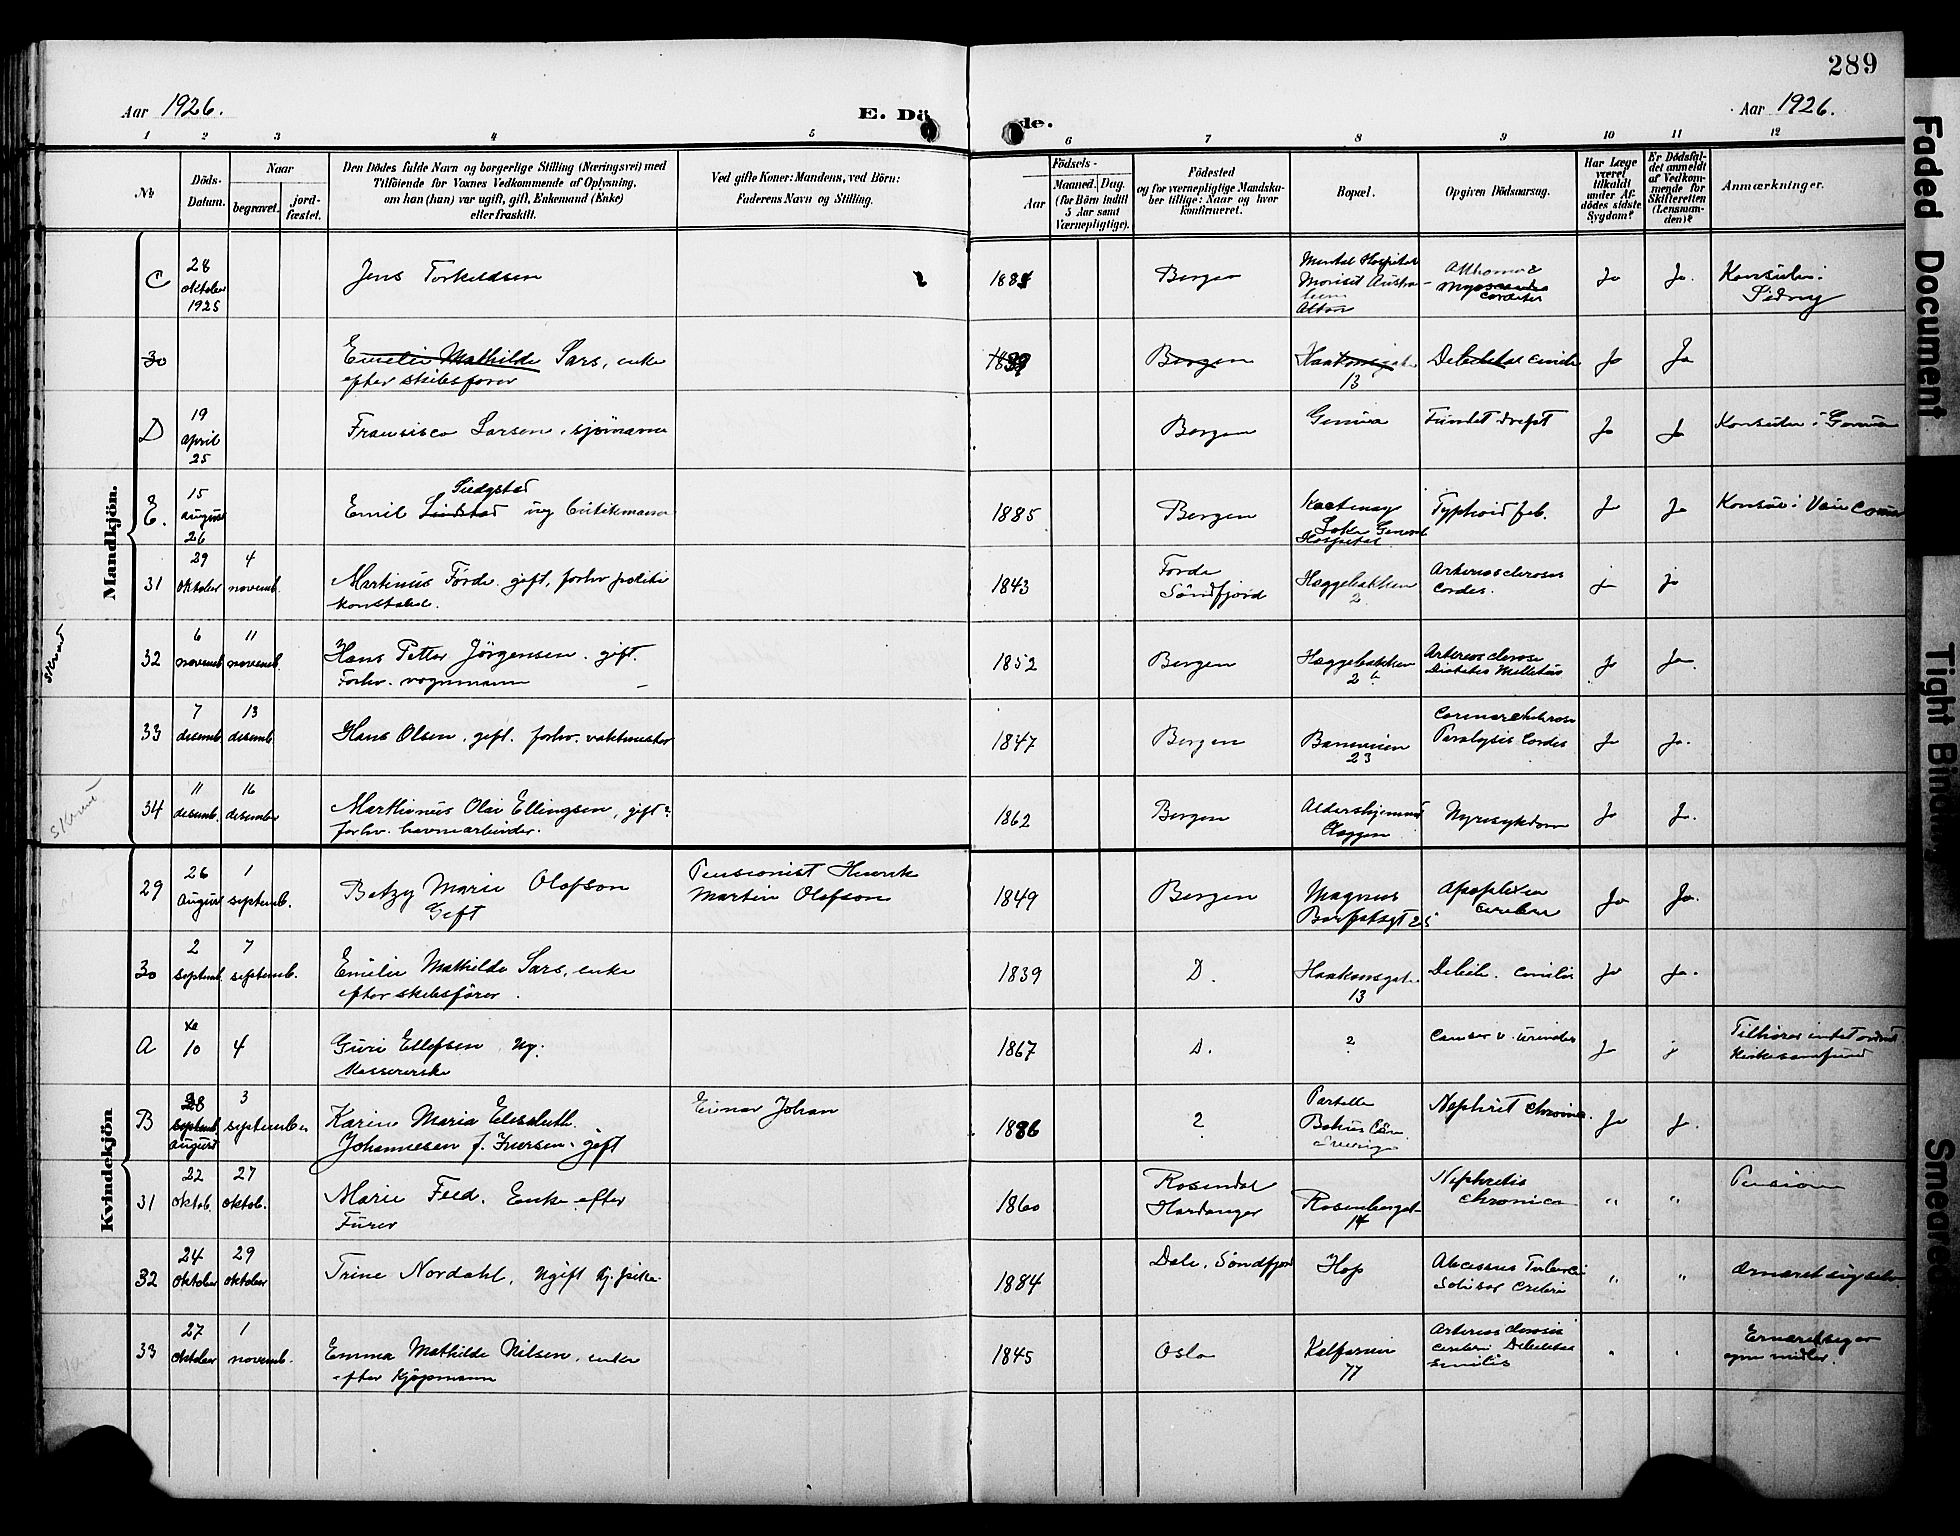 289
Aar 1926.
E. Dö
de.
Aar 1926.
1 2 3 4 5 6 7 8 9 10 11 12
No
Döds-
Datum.
Naar
begravet.
jord-
fæstet.
Den Dödes fulde Navn og borgerlige Stilling (Næringsvei) med
Tilföiende for Voxnes Vedkommende af Oplysning,
om han (hun) var ugift, gift, Enkemand (Enke)
eller fraskilt.
Ved gifte Koner: Mandens, ved Börn:
Faderens Navn og Stilling.
Födsels-
Aar
Maaned. Dag.
(for Börn indtil
5 Aar samt
Værnepligtige).
Födested
og for værnepligtige Mandska-
ber tillige: Naar og hvor
konfirmeret.
Bopæl.
Opgiven Dödsaarsag.
Har Læge
været
tilkaldt
under Af-
dödes sidste
Sygdom?
Er Dödsfal-
det anmeldt
af Vedkom-
mende for
Skifteretten
(Lensman-
den)?
Anmærkninger.
Mandkjön.
C
28
oktober
1925
Jens Torkildsen
Bergen
Mental Hospital
Morisit Austra-
Jo
Ja.
Konsulen i
Sidny
30
Emilie Mathilde Sars, enke
efter skibsfører
1839
Bergen
Haakonsgaten
13
Jo
Ja
D
19
april
25
Fransisco Larsen, sjömann
Bergen
Genua
Fundet dræpt
Jo
Ja
Konsulen i Genua
E.
15
august
26
Emil Lindstad ug butikmann
1885
Bergen
General
Hospital
Typhoid feb.
Jo
Ja
31
29
oktober
4
novemb.
Martinus Förde. gift, forhv politi
konstabel.
1843
Förde
Söndfjord
Hæggebakken
2
Arteriosclerosis
Cordis.
j
jo
skrevet
32
6
novemb.
11
novemb.
Hans Petter Jörgensen. gift.
Forhv. vognmann
1852
Bergen
Hæggebakken
2 b
Arteriosclerose
Diabetes Mellitus
Jo
Ja.
33
7
desemb.
13
desemb.
Hans Olsen, gift. forhv. vaktmester
1847
Bergen
Baneveien
23
Paralysis Cordis
Jo
Ja.
34
11
desemb.
16
desember
Marthinus Olai Ellingsen, gift
forhv. havnearbeider.
1862
Bergen
Aldershjemmet
Claggen
Nyresykdom
Jo
Ja.
Kvindekjön
29
26
august
1
septemb.
Betzy Marie Olafson
Gift
Pensionist Henrik
Martin Olafson
1849
Bergen
Magnus
Barfotsgt 25
Apoplexia
cerebri
Jo
Ja.
30
2
septemb.
7
septemb.
Emilie Mathilde Sars, enke
efter skibsfører.
1839
D.
Haakonsgate
13
Debil. senilis
Jo
Ja.
A
10
4
Guri Ellefsen. Ug.
Kassererske
1867
D.
?
Cancer v. urinalis
Jo
j
Tilhører intet ordnet
kirkesamfund
B
28
septemb.
august
3
september
Karin Maria Elisabeth
Johannesen f. Iversen. gift
Einar Johan
1886
?
Partelle
Bohus Län
Sverig
Nephrit chronica.
Jo
J.
31
22
oktob.
27
oktob.
Marie Feed. Enke efter
Fürer
1860
Rosendal
Hardanger
Rosenbergsgt
14
Nephritis
chronica
"
"
Pension
32
24
oktober
29
oktober
Trine Nordahl, Ugift
1884
Dale, Söndfjord
Hop
"
"
Ernæret sig selv
33
27
oktober
1
novemb.
Emma Mathilde Nilsen, enke
efter Kjöpmann
1845
Oslo
Kalfarvei
77
Arteriosclerosis
cerebri Debilitas
senilis
"
"
Ernæret sig av
egne midler.
Faded Document
Tight Binding
Smeared